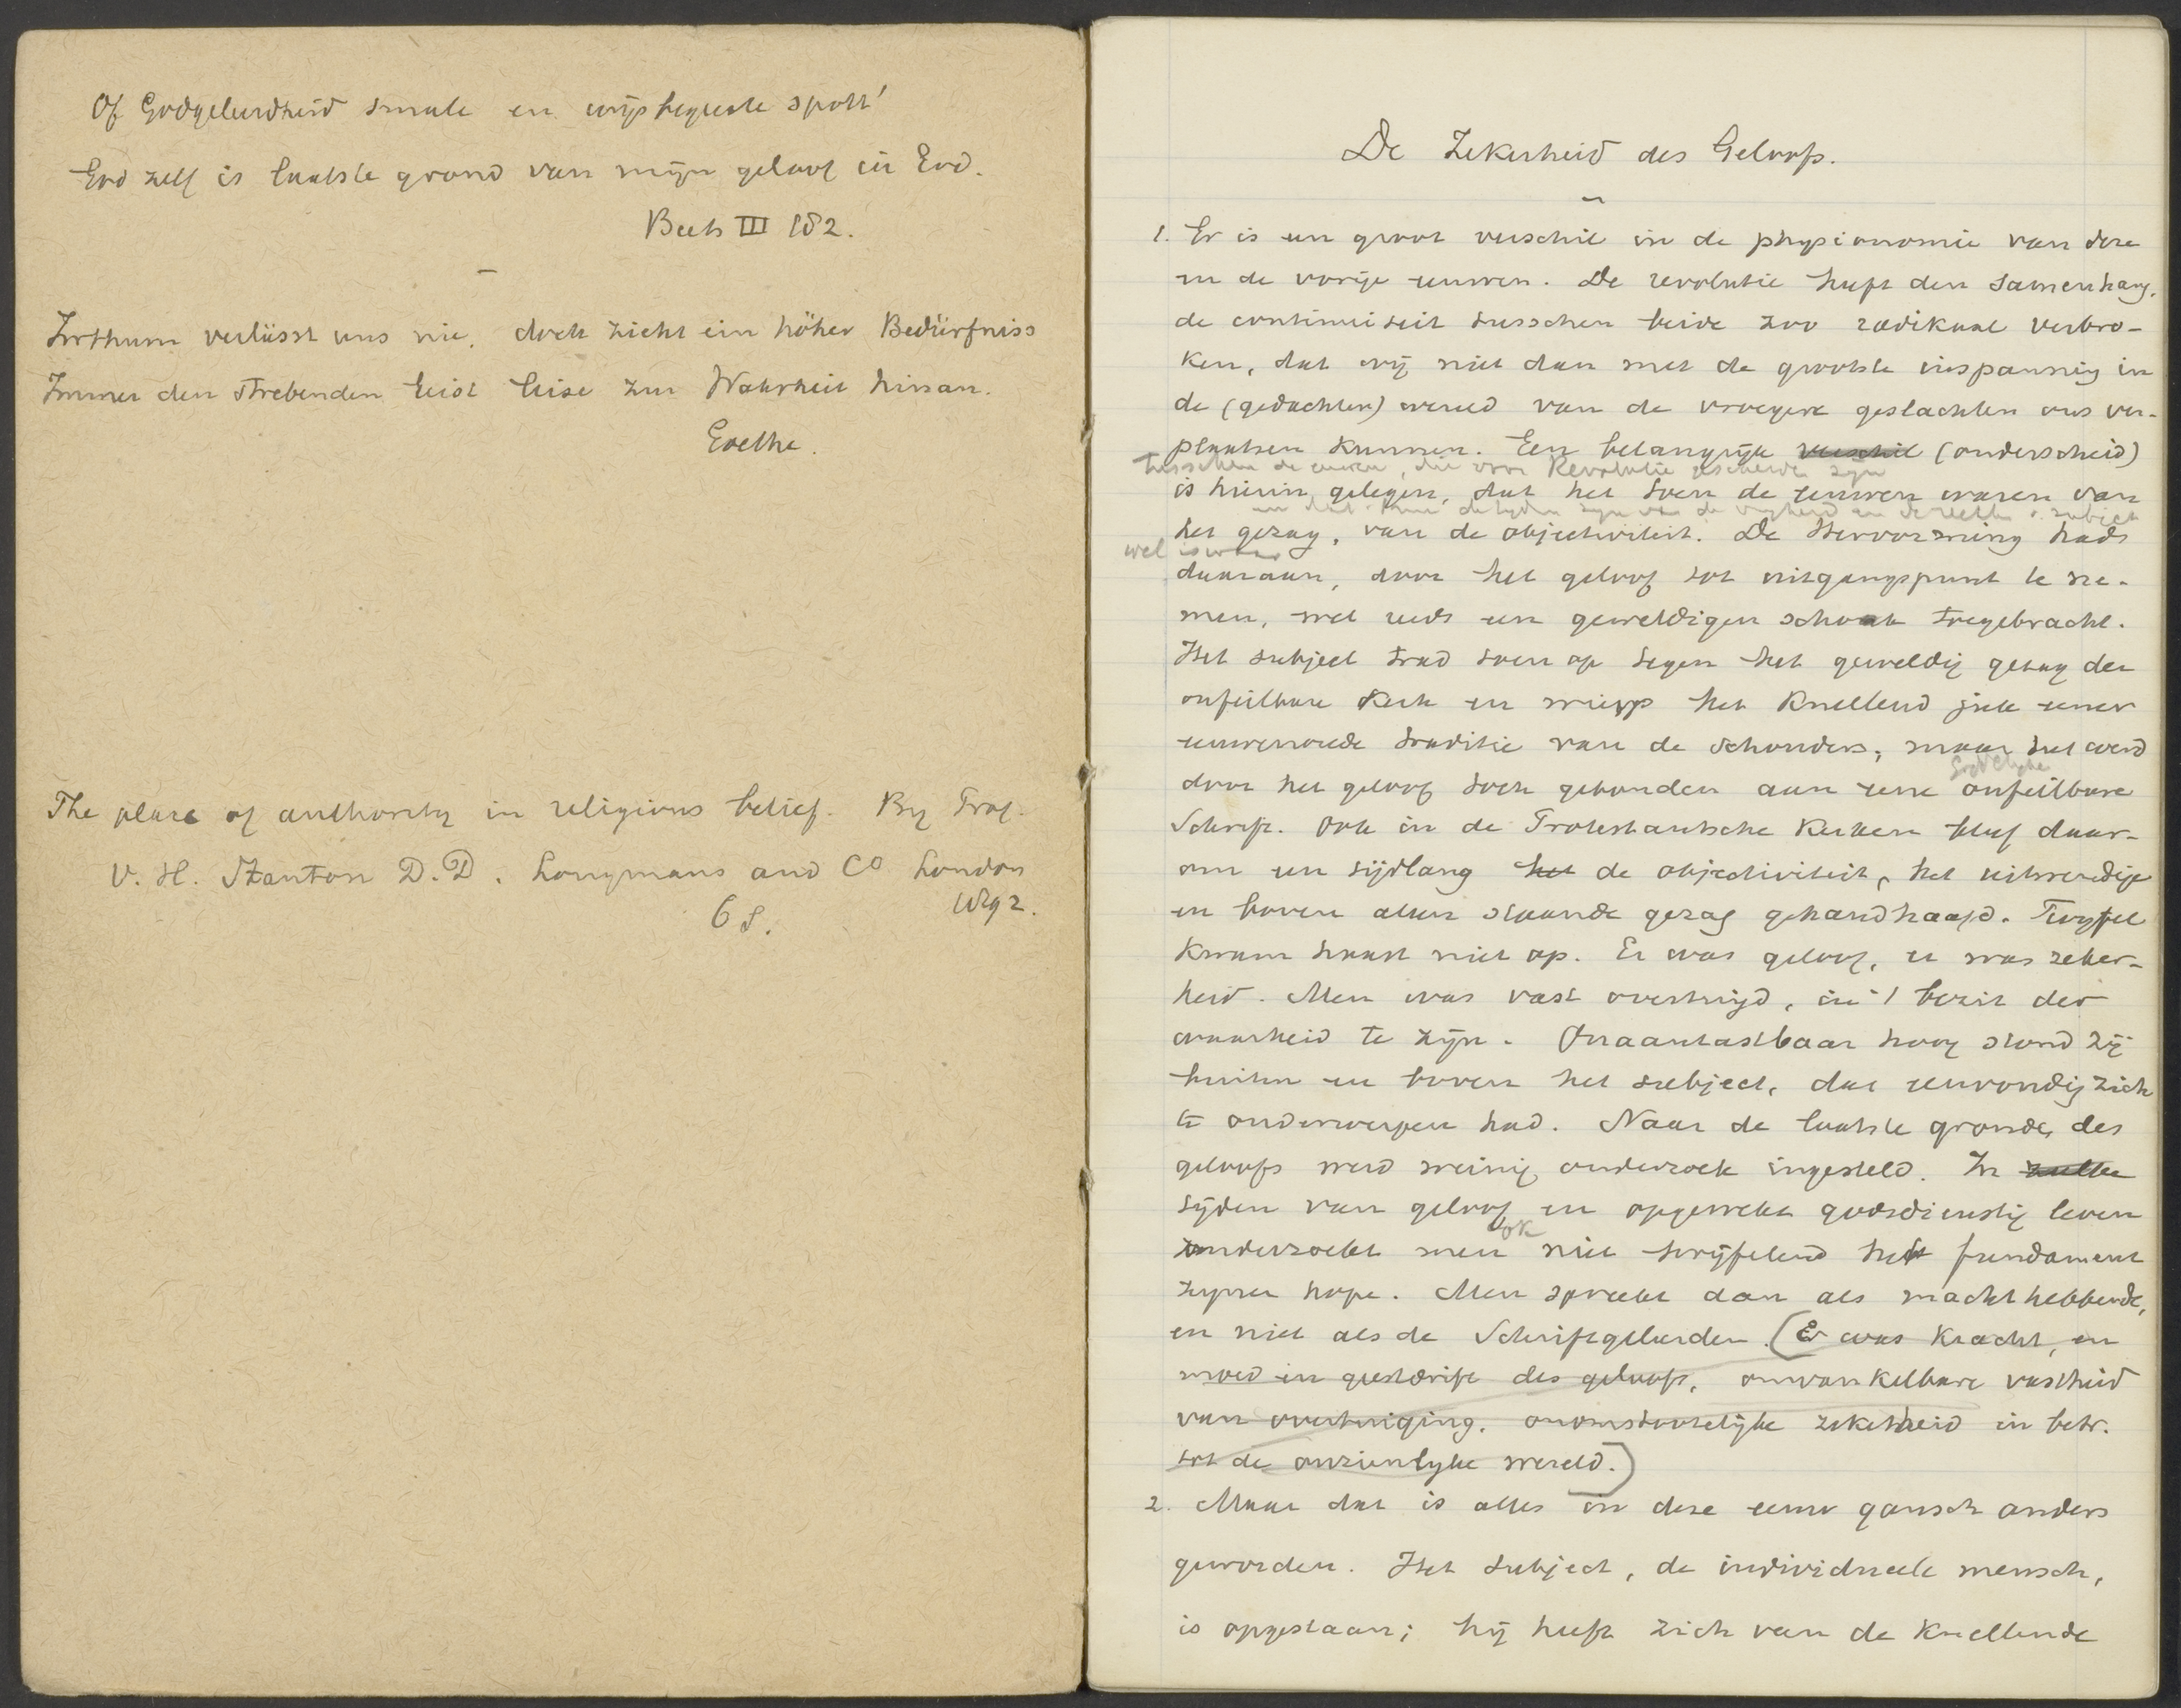 Of Godgeleerdheid smale en wijsbegeerte spott'
God zelf is laatste grond van mijn geloof in God.
Beets III 182.
Irrthum verlässt uns nie, doch zieht ein höher Bedürfniss
Immer den strebenden Geist leise zur Wahrheit hinan.
Goethe.
The place of authority in religious belief. By Prof.
V. H. Stanton D.D. Longmans and Co London
6 s. 1892.
De Zekerheid des Geloofs.
1. Er is een groot verschil in de physionomie van deze
en de vorige eeuwen. De revolutie heeft den samenhang,
de continuiteit tusschen beide zoo radikaal verbro-
ken, dat wij niet dan met de grootste inspanning in
de (gedachten) wereld van de vroegere geslachten ons ver-
plaatsen kunnen. Een belangrijk verschil (onderscheid)
tusschen de eeuwen, die door Revolutie gescheiden zijn
is hierin gelegen, dat het toen de eeuwen waren van
en dat thans de tijden zijn van de vrijheid en de rechten v. subject
het gezag, van de objectiviteit. De Hervorming had
wel iswaar
daaraan, door het geloof tot uitgangspunt te ne-
men, wel reeds een geweldigen schok toegebracht.
Het subject trad toen op tegen het geweldig gezag der
onfeilbare Kerk en wierp het knellend juk eener
eeuwenoude traditie van de schouders; maar het werd
Goddelijke
door het geloof toch gebonden aan eene onfeilbare
Schrift. Ook in de Protestantsche Kerken bleef daar-
om een tijdlang het de objectiviteit, het uitwendige
en boven allen staande gezag gehandhaafd. Twijfel
kwam haast niet op. Er was geloof, er was zeker-
heid. Men was vast overtuigd, in 't bezit der
waarheid te zijn. Onaantastbaar hoog stond zij
buiten en boven het subject, dat eenvoudig zich
te onderwerpen had. Naar de laatste gronden des
geloofs werd weinig onderzoek ingesteld. In zulke
tijden van geloof en opgewekt godsdienstig leven
ook
onderzoekt men niet twijfelend het fundament
zijner hope. Men spreekt dan als machthebbende,
en niet als de Schriftgeleerden. (Er was kracht, en
moed en geestdrift des geloofs, onwankelbare vastheid
van overtuiging, onomstootelijke zekerheid in betr.
tot de onzienlijke wereld.)
2. Maar dat is alles in deze eeuw gansch anders
geworden. Het subject, de individueele mensch,
is opgestaan; hij heeft zich van de knellende